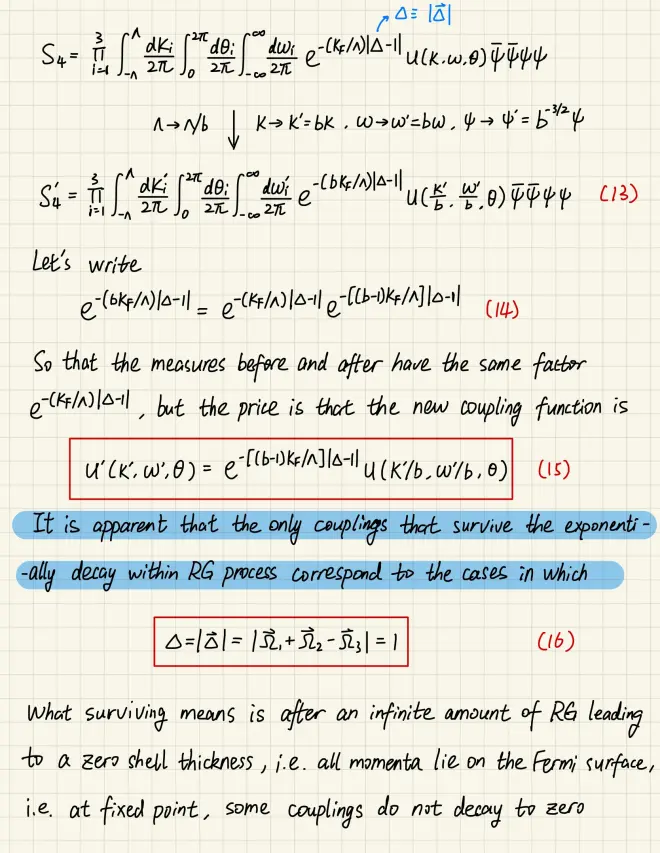 Δ ≡ |Δ⃗|
S₄ = ∏_{i=1}^{3} ∫_{-Λ}^{Λ} dKᵢ/2π ∫_0^{2π} dθᵢ/2π ∫_{-∞}^{∞} dωᵢ/2π e^{-(K_F/Λ)|Δ-1|} u(K.ω,θ) ψ̄ ψ̄ ψ ψ
Λ → Λ/b ↓ K → K' = bK . ω → ω' = bω . ψ → ψ' = b^{-3/2} ψ
S₄' = ∏_{i=1}^{3} ∫_{-Λ}^{Λ} dKᵢ'/2π ∫_0^{2π} dθᵢ/2π ∫_{-∞}^{∞} dωᵢ'/2π e^{-(bK_F/Λ)|Δ-1|} u(K'/b . ω'/b ,θ) ψ̄ ψ̄ ψ ψ (13)
Let's write
e^{-(bK_F/Λ)|Δ-1|} = e^{-(K_F/Λ)|Δ-1|} e^{-[(b-1)K_F/Λ]|Δ-1|} (14)
So that the measures before and after have the same factor
e^{-(K_F/Λ)|Δ-1|} , but the price is that the new coupling function is
u'(K'. ω', θ) = e^{-[(b-1)K_F/Λ]|Δ-1|} u(K'/b, ω'/b, θ) (15)
It is apparent that the only couplings that survive the exponenti-
-ally decay within RG process correspond to the cases in which
Δ = |Δ⃗| = |Ω⃗₁ + Ω⃗₂ - Ω⃗₃| = 1 (16)
What surviving means is after an infinite amount of RG leading
to a zero shell thickness , i.e. all momenta lie on the Fermi surface,
i.e. at fixed point, some couplings do not decay to zero